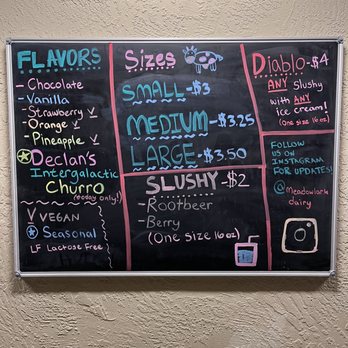 FLAVORS
- Chocolate
- Vanilla
- Strawberry V
- Orange V
- Pineapple V
Declan's
Intergalactic
Churro
(today only!)
V VEGAN
Seasonal
LF Lactose Free
Sizes
SMALL -$3
MEDIUM -$3.25
LARGE -$3.50
SLUSHY -$2
- Rootbeer
- Berry
(One size 16 oz)
Diablo -$4
ANY Slushy
with ANY
ice cream!
(One size 16 oz)
FOLLOW
US ON
INSTAGRAM
FOR UPDATES!
@Meadowlark
dairy